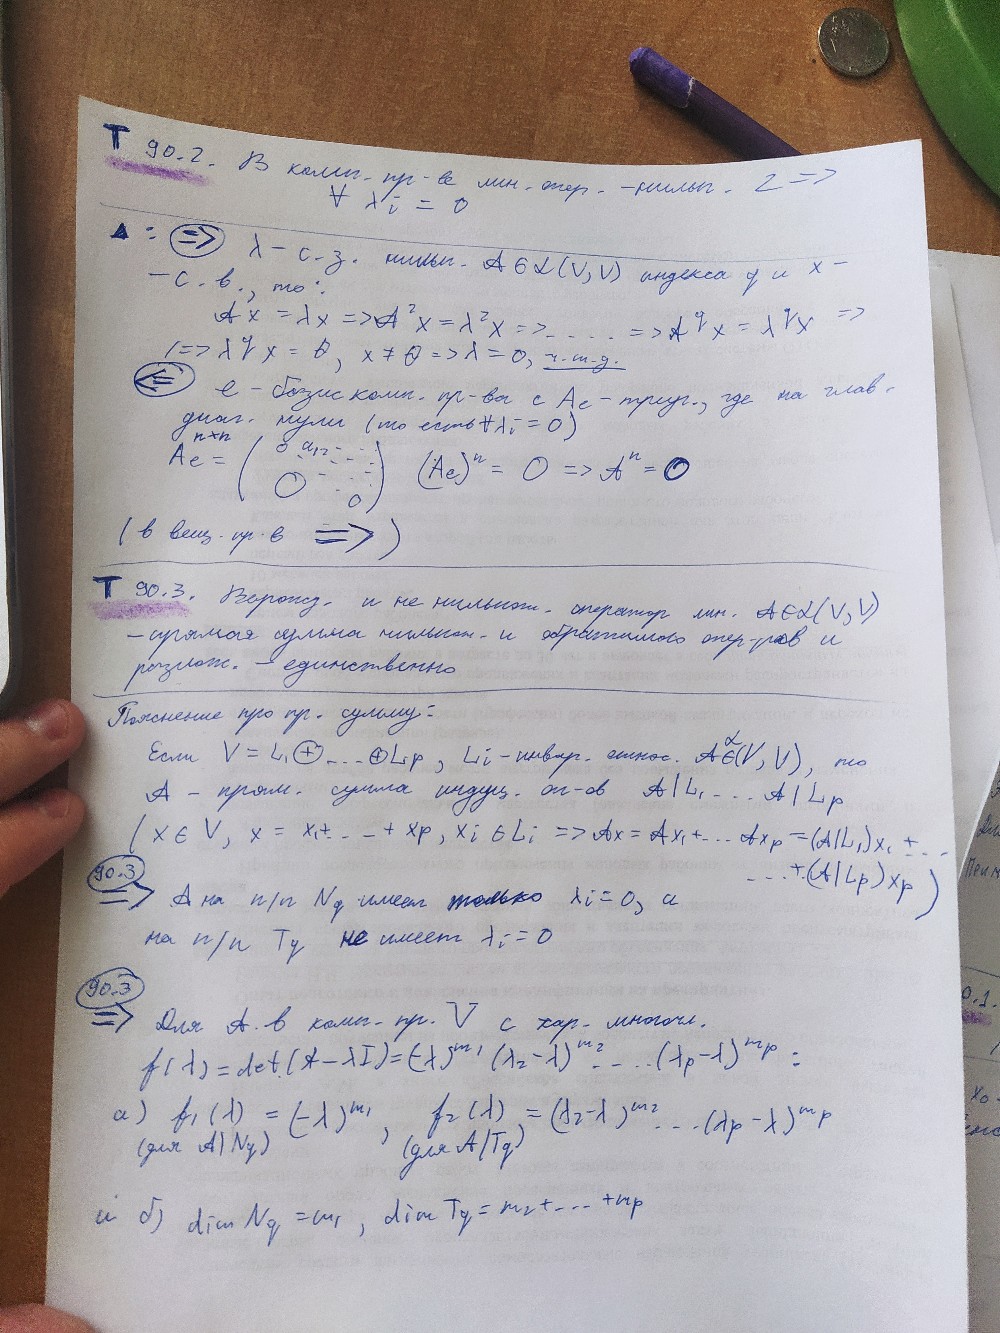 Т 90.2. В комп. пр-ве лин. опер. -нильп. 2 =>
∀ λi = 0
Δ: => λ - с.з. нильп. A∈L(V,V) индекса q и x -
- с.в., то:
Ax = λx => A²x = λ²x => ..... => A^q x = λ^q x =>
(=> λ^q x = θ, x ≠ θ => λ = 0, ч.т.д.
<= e - базис комп. пр-ва с Ae - треуг., где на глав.
диаг. нули (то есть ∀λi = 0)
Ae^{n×n} = ( 0 a12 ... 0 0 ) (Ae)^n = O => A^n = O
(в вещ. пр-в => )
Т 90.3. Вырожд. и не нильпот. оператор лин. A∈L(V,V)
- прямая сумма нильпот. и обратимого опер-ров и
разлож. - единственно
Пояснение про пр. сумму:
Если V = L1 ⊕ ... ⊕ Lp, Li - инвар. относ. A∈L(V,V), то
A - прям. сумма индуц. оп-ов A|L1 ... A|Lp
(x ∈ V, x = x1 + ... + xp, xi ∈ Li => Ax = Ax1 + ... Axp = (A|L1)x1 + ...
... + (A|Lp)xp)
90.3 => A на п/п Nq имеет только λi = 0, а
на п/п Tq не имеет λi = 0
90.3 => Для A в комп. пр. V с хар. многочл.
f(λ) = det(A - λI) = (-λ)^m1 (λ2 - λ)^m2 ..... (λp - λ)^mp :
а) f1(λ) = (-λ)^m1, f2(λ) = (λ2 - λ)^m2 ... (λp - λ)^mp
(для A|Nq) (для A|Tq)
и б) dim Nq = m1, dim Tq = m2 + ... + mp